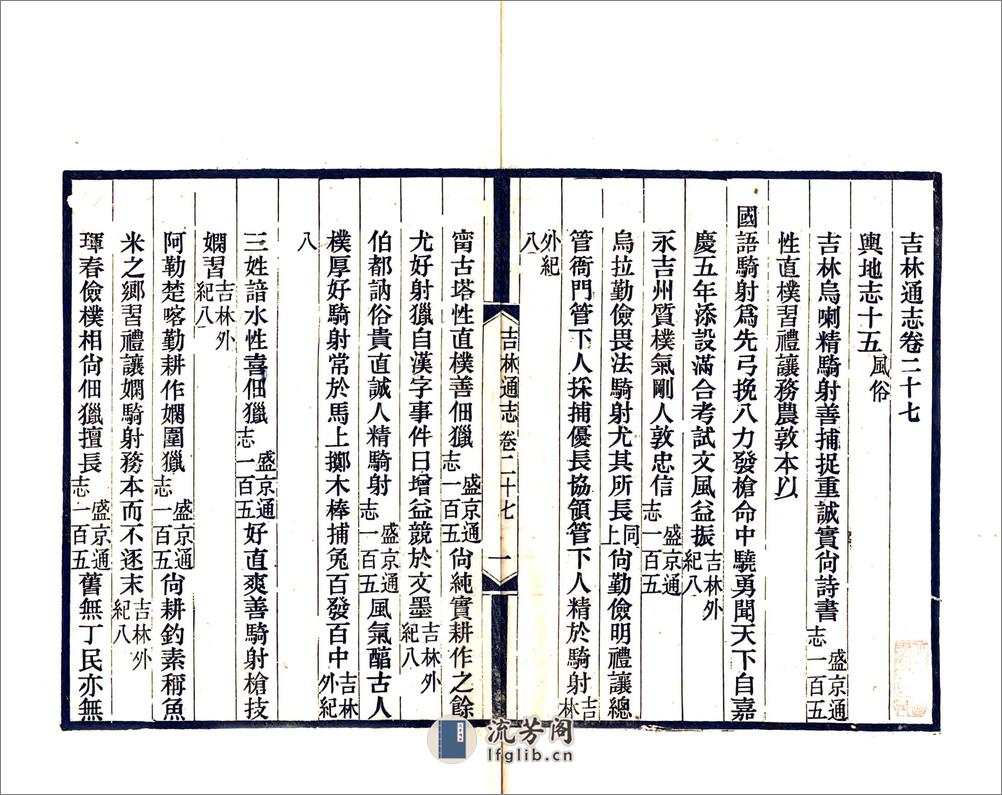 吉林通志卷二十七
輿地志十五 風俗
吉林烏喇精騎射善捕捉重誠實尚詩書 盛京通志一百五
性直樸習禮讓務農敦本以
國語騎射爲先弓挽八力發槍命中驍勇聞天下自嘉
慶五年添設滿合考試文風益振 吉林外紀八
永吉州質樸氣剛人敦忠信 盛京通志一百五
烏拉勤儉畏法騎射尤其所長 同上 尚勤儉明禮讓總
管衙門管下人採捕優長協領管下人精於騎射 吉林
外紀八
吉林通志 卷二十七 一
甯古塔性直樸善佃獵 盛京通志一百五 尚純實耕作之餘
尤好射獵自漢字事件日增益競於文墨 吉林外紀八
伯都訥俗貴直誠人精騎射 盛京通志一百五 風氣醕古人
樸厚好騎射常於馬上擲木棒捕兔百發百中 吉林外紀
八
三姓諳水性喜佃獵 盛京通志一百五 好直爽善騎射槍技
嫻習 吉林外紀八
阿勒楚喀勤耕作嫻圍獵 盛京通志一百五 尚耕釣素稱魚
米之鄉習禮讓嫻騎射務本而不逐末 吉林外紀八
琿春儉樸相尚佃獵擅長 盛京通志一百五 舊無丁民亦無
流芳阁
lfglib.cn